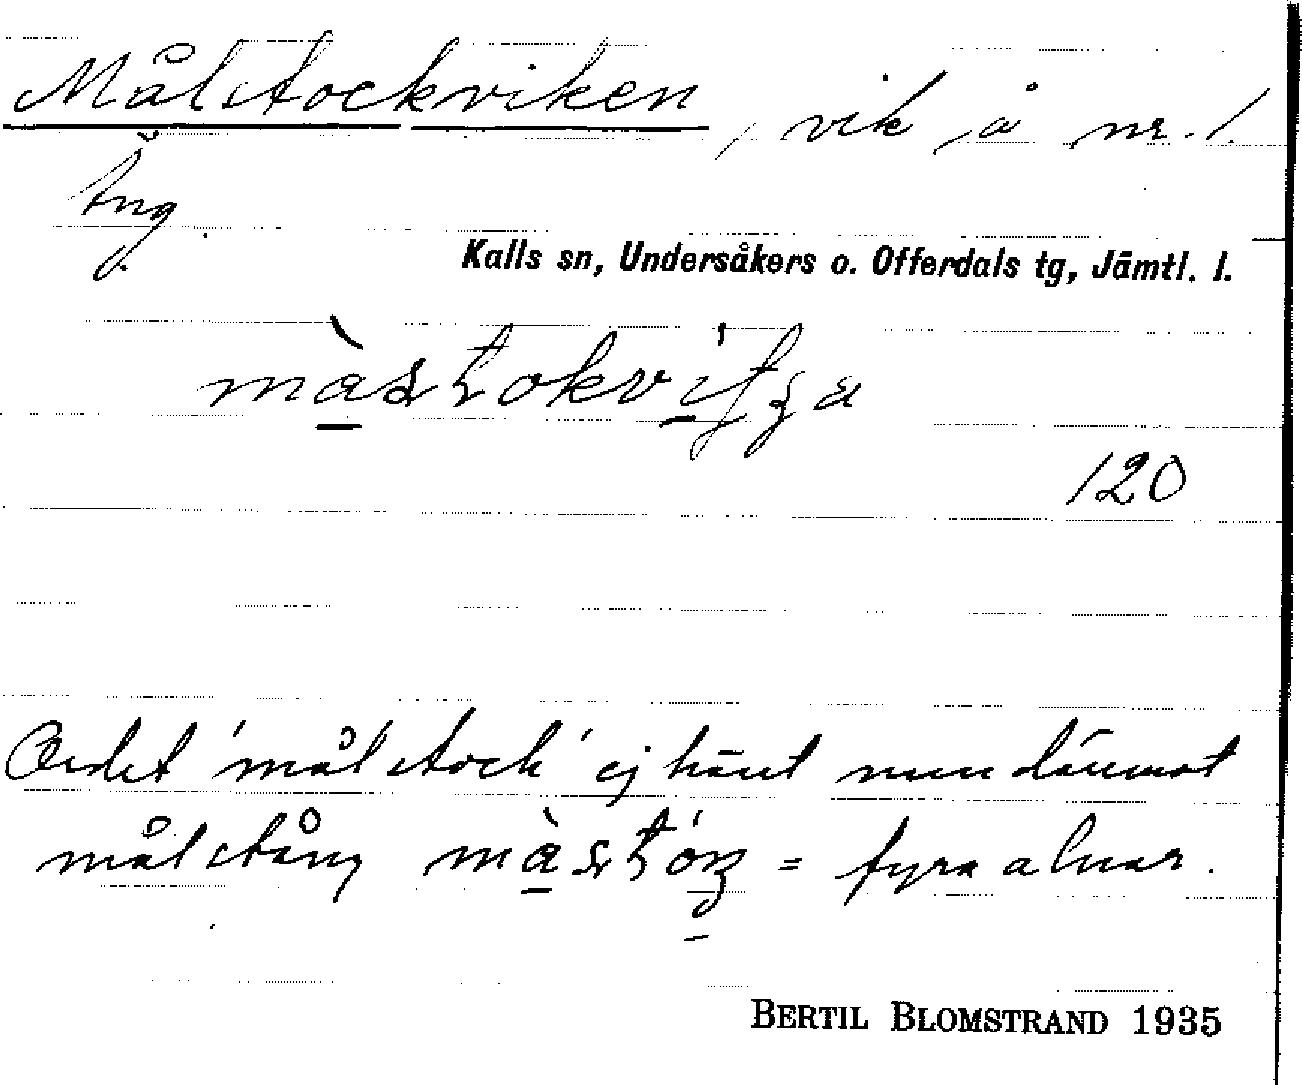 Målstockviken, vik, å nr. 1.
tng.
Kalls sn, Undersåkers o. Offerdals tg, Jämtl. l.
120
Ordet 'målstock' ej hänt men däremot
målstång = fyra alnar.
BERTIL BLOMSTRAND 1935